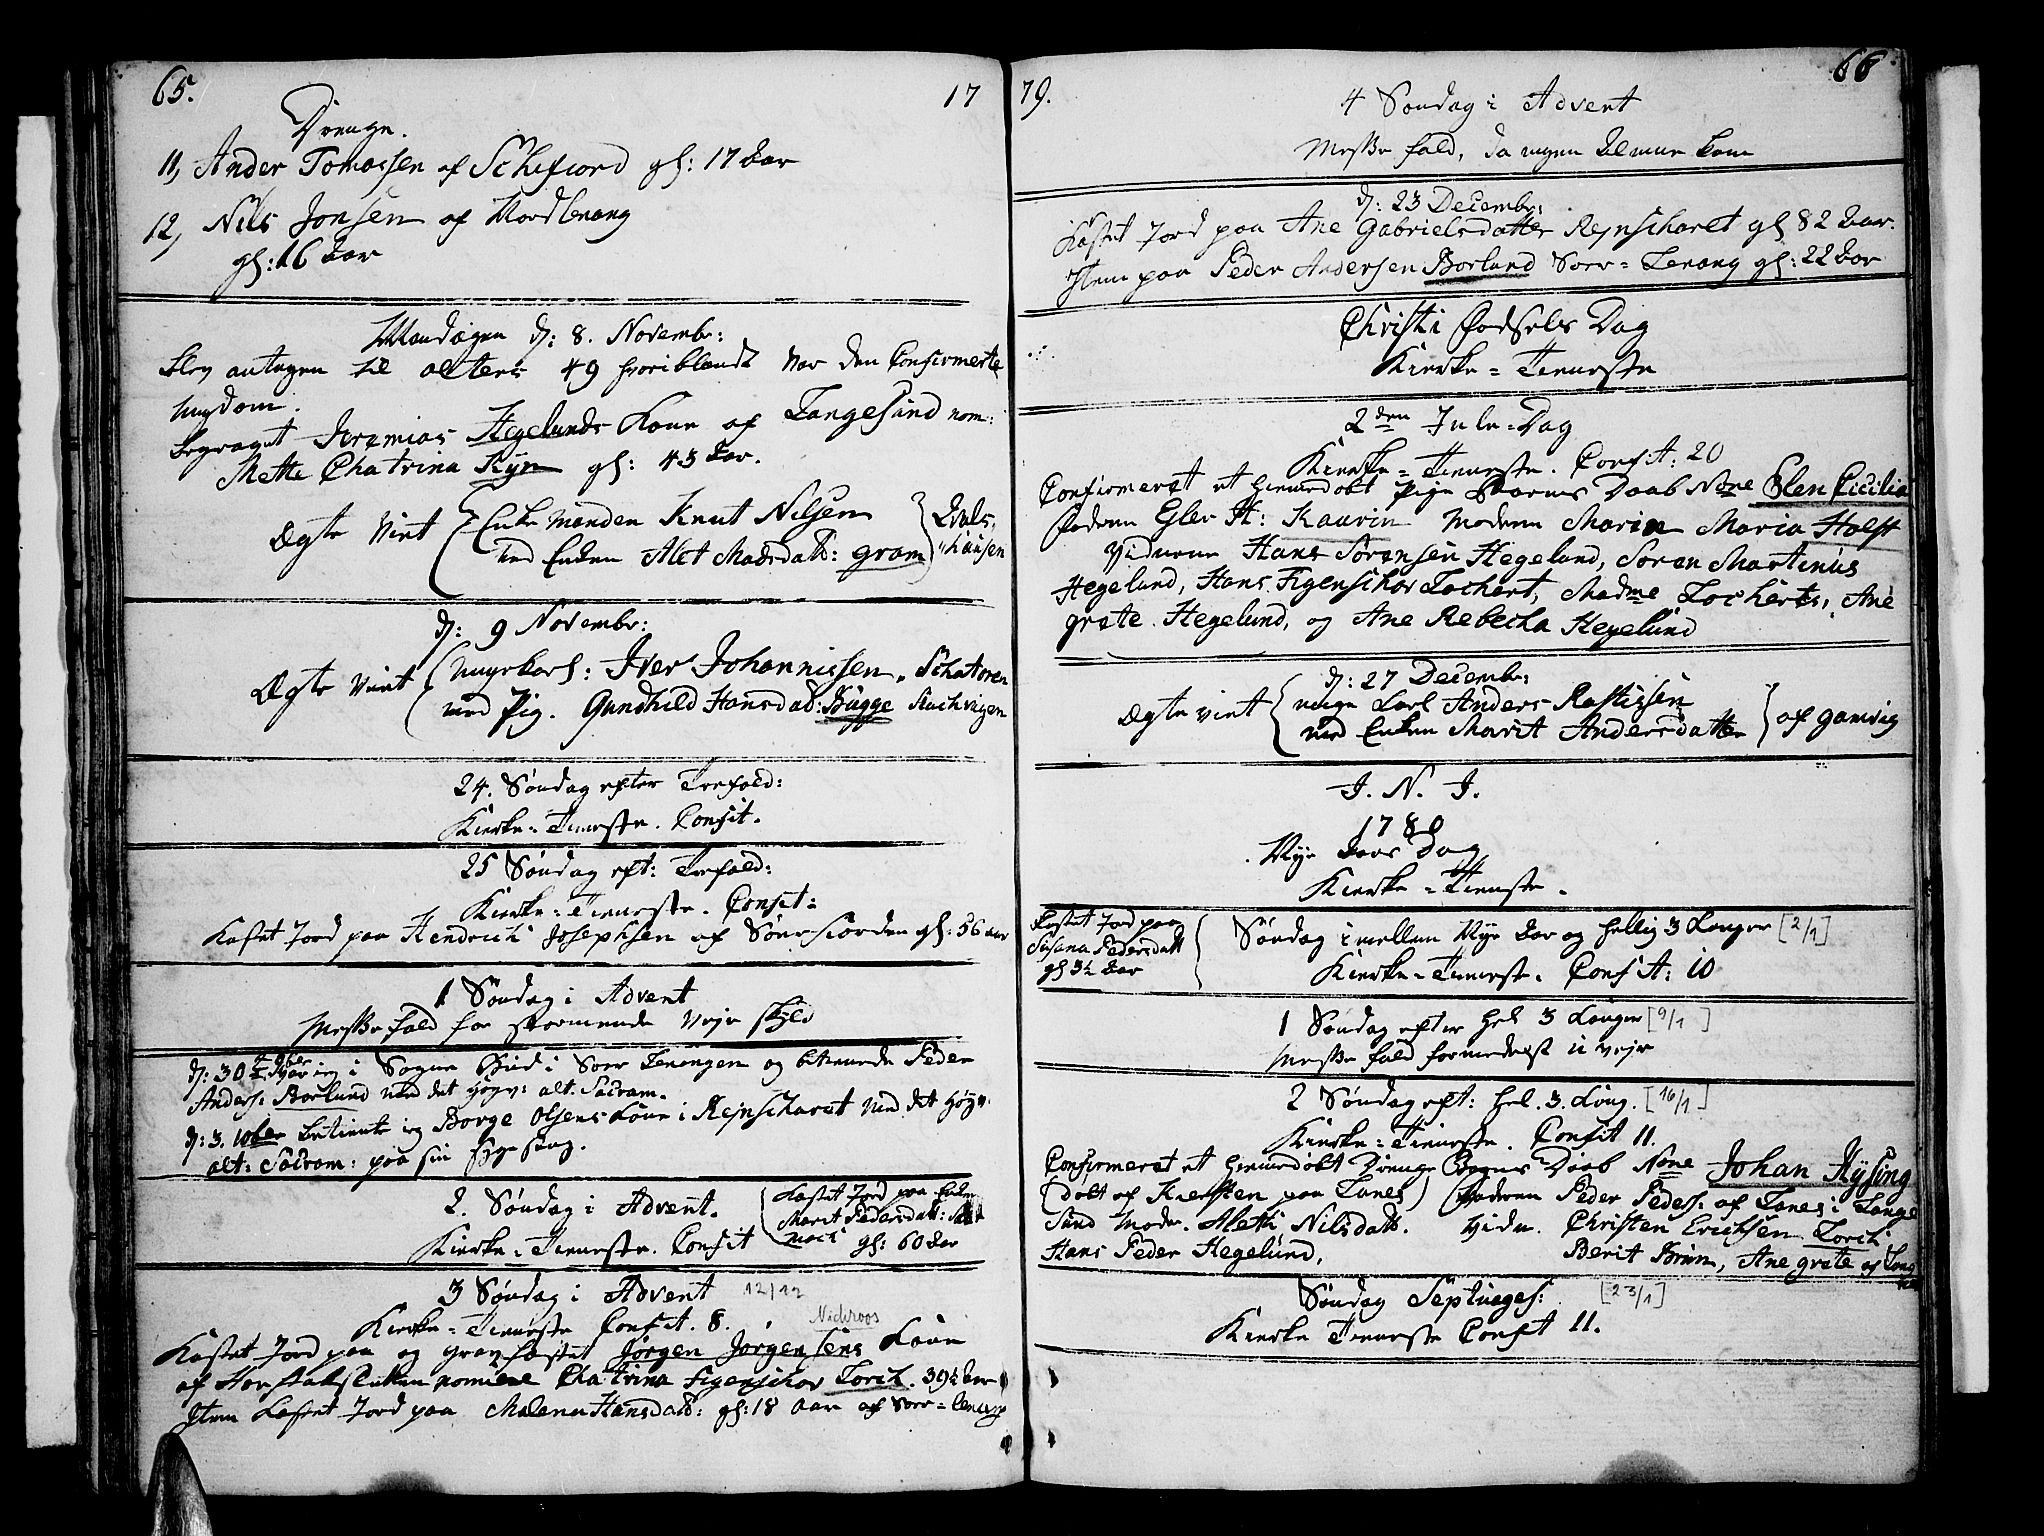 65.
17
Drenge.
11, Ander Tomassen af Schefiord gl: 17 Aar
12, Nils Jonsen af Nordlenang
gl: 16 Aar
Mandagen d: 8. Novembr:
blev antagen til alters 49 hvoriblandt var den Confirmerte
Ungdom.
begravet Jeremias Hegelunds Kone af Langesund nom:
Mette Chatrina Kyn gl: 43 Aar.
Ægte Viet Enke Manden Knut Nilsen
med Enken Alet Madsdatt: gram
d: 9 Novembr:
Ægte Viet Ungekarl: Iver Johannissen, Schatøren
med Pig. Gundhild Hansdad: Bugge Stachvigen
24. Søndag efter Trefold:
Kirke-Tieneste. Confit.
25 Søndag eft: Trefold:
Kirke-Tieneste. Confit:
Kastet Jord paa Hendrich Josephsen af Sørfiorden gl: 56 aar
1 Søndag i Advent
Messefald for stormende Veje skyld
d: 30 var jeg i Sogne Bud i Sør Lenangen og betiente Peder
Anders: Borlund med det høyv: alt. Sacram.
d: 3. 10ber betiente jeg Borge Olsens Kone i Rejnscharet med det høyv.
alt: Sacram: paa sin syge seng.
2. Søndag i Advent.
Kirke-Tieneste. Confit
Kastet Jord paa Enken
Marit Pedersdatt:
gl: 60 Aar
3 Søndag i Advent 12/12
Kirke-Tieneste Confit. 8.
Nichroos
Kastet Jord paa og gravfæstet Jørgen Jørgensens Kone
af Havnnæs nomine Chatrina Figenschov Lorch. 39½ Aar
Item Kastet Jord paa Malena Hansdatt: gl: 18 Aar af Sør-lenang
79.
66
4 Søndag i Advent
Messefald, da ingen Almue kom
d: 23 Decembr:
Kastet Jord paa Ane Gabrielsdatter Rejnscharet gl 82 Aar.
Item paa Peder Andersen Borlund Sør-Lenang gl: 22 Aar
Christi Fødsels Dag
Kirke-Tieneste
2den Jule-Dag
Kirke-Tieneste. Confit: 20
Confirmeret et hiemedøbt Pige Barnes Daab None Elen Cicilia
Faderen Kaurin Moderen Maren Maria Holst
Vidnerne Hans Sørensen Hegelund, Søren Martinus
Hegelund, Hans Figenschov Lochert, Madme Locherts, Ane
grete Hegelund, og Ane Rebecha Hegelund
d: 27 Decembr:
Ægte viet unge Carl Anders Rastissen
med Enken Marit Andersdatter af gamvig
J. N. J.
1780
Nye Aars Dag
Kirke-Tieneste.
Kastet Jord paa
Susana Pedersdatt
gl 3½ Aar
Søndag imellem Nye Aar og hellig 3 Konger [2/1]
Kirke-Tieneste. Confit: 10
1 Søndag efter hel 3 Konger [9/1]
Messefald formedelst u veje
2 Søndag eft: hel. 3. Kong. [16/1]
Kirke-Tieneste. Confit 11.
Confirmeret et hiemedøbt Drenge Barnes Daab None Johan Hysing
(døbt af Kiersten paa Lanes) Faderen Peder Peders: af Lanes i Lange
Sund Moder. Aleth Nilsdatt. Vidn. Christen Erichsen Lorch
Hans Peder Hegelund, Berit Brun, Ane grete af
Søndag Septuages: [23/1]
Kirke Tieneste Confit 11.